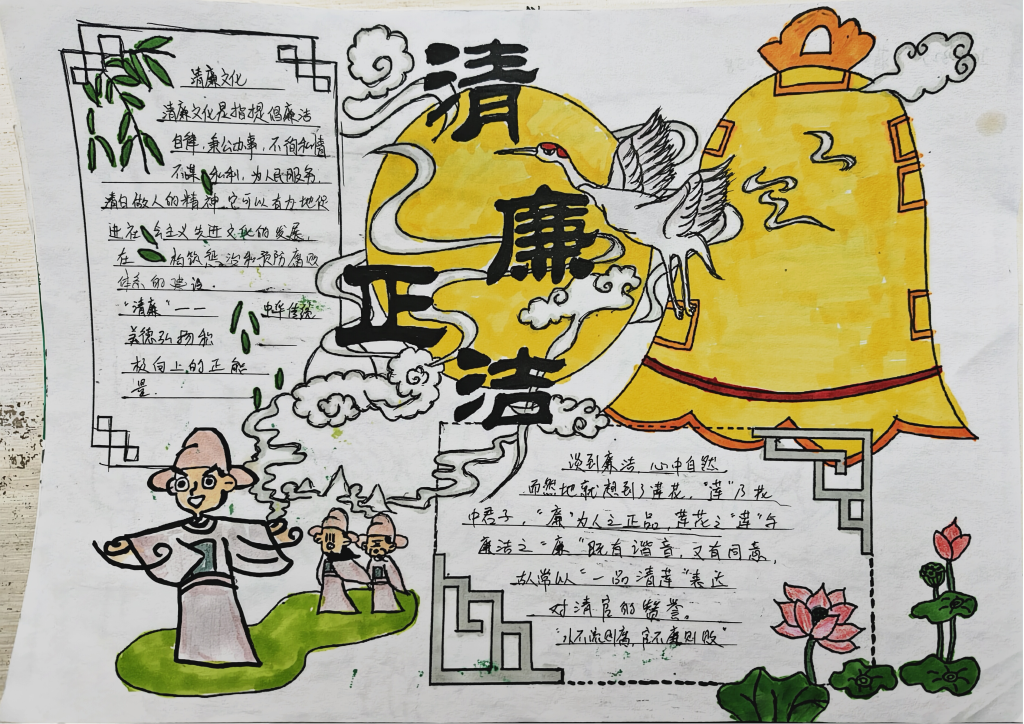 清廉正洁
清廉文化
清廉文化是指提倡廉洁
自律,秉公办事,不徇私情
不谋私利,为人民服务,
清白做人的精神,它可以有力地促
进在会主义先进文化的发展,
在 构筑惩治和预防腐败
体系的建设.
“清廉”一一 中华传统
美德弘扬积
极向上的正能
量.
谈到廉洁 心中自然
而然地就想到了莲花,“莲”乃花
中君子,“廉”为人之正品,莲花之“莲”与
廉洁之“廉”既有谐音,又有同意,
故常以“一品清莲”表达
对清官的赞誉。
“水不流则腐,官不廉则败”